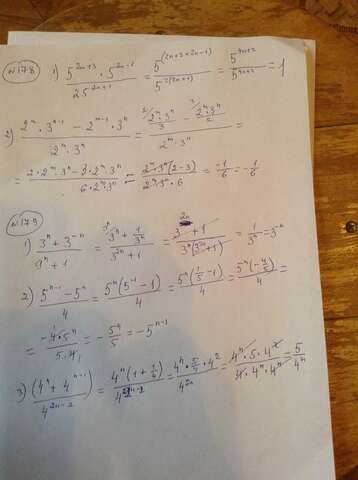 N178
1) 5^(2n+3) · 5^(2n-1) / 25^(2n+1) = 5^(2n+3+2n-1) / 5^(2(2n+1)) = 5^(4n+2) / 5^(4n+2) = 1
2) (2^n · 3^(n-1) - 2^(n-1) · 3^n) / (2^n · 3^n) = (2^n · 3^n / 3 - 2^n · 3^n / 2) / (2^n · 3^n) =
= (2 · 2^n 3^n - 3 · 2^n 3^n) / (6 · 2^n 3^n) = 2^n · 3^n (2-3) / (2^n · 3^n · 6) = -1/6 = -1/6
N179
1) (3^n + 3^(-n)) / (9^n + 1) = (3^n + 1/3^n) / (3^(2n) + 1) = (3^(2n) + 1) / (3^n (3^(2n) + 1)) = 1/3^n = 3^(-n)
2) (5^(n-1) - 5^n) / 4 = 5^n (5^(-1) - 1) / 4 = 5^n (1/5 - 1) / 4 = 5^n (-4/5) / 4 =
= -4 · 5^n / (5 · 4) = -5^n / 5 = -5^(n-1)
3) (4^n + 4^(n-1)) / 4^(2n-2) = 4^n (1 + 1/4) / 4^(2n-2) = 4^n · 5/4 · 4^2 / 4^(2n) = 4^n · 5 · 4^2 / (4 · 4^n · 4^n) = 5 / 4^n